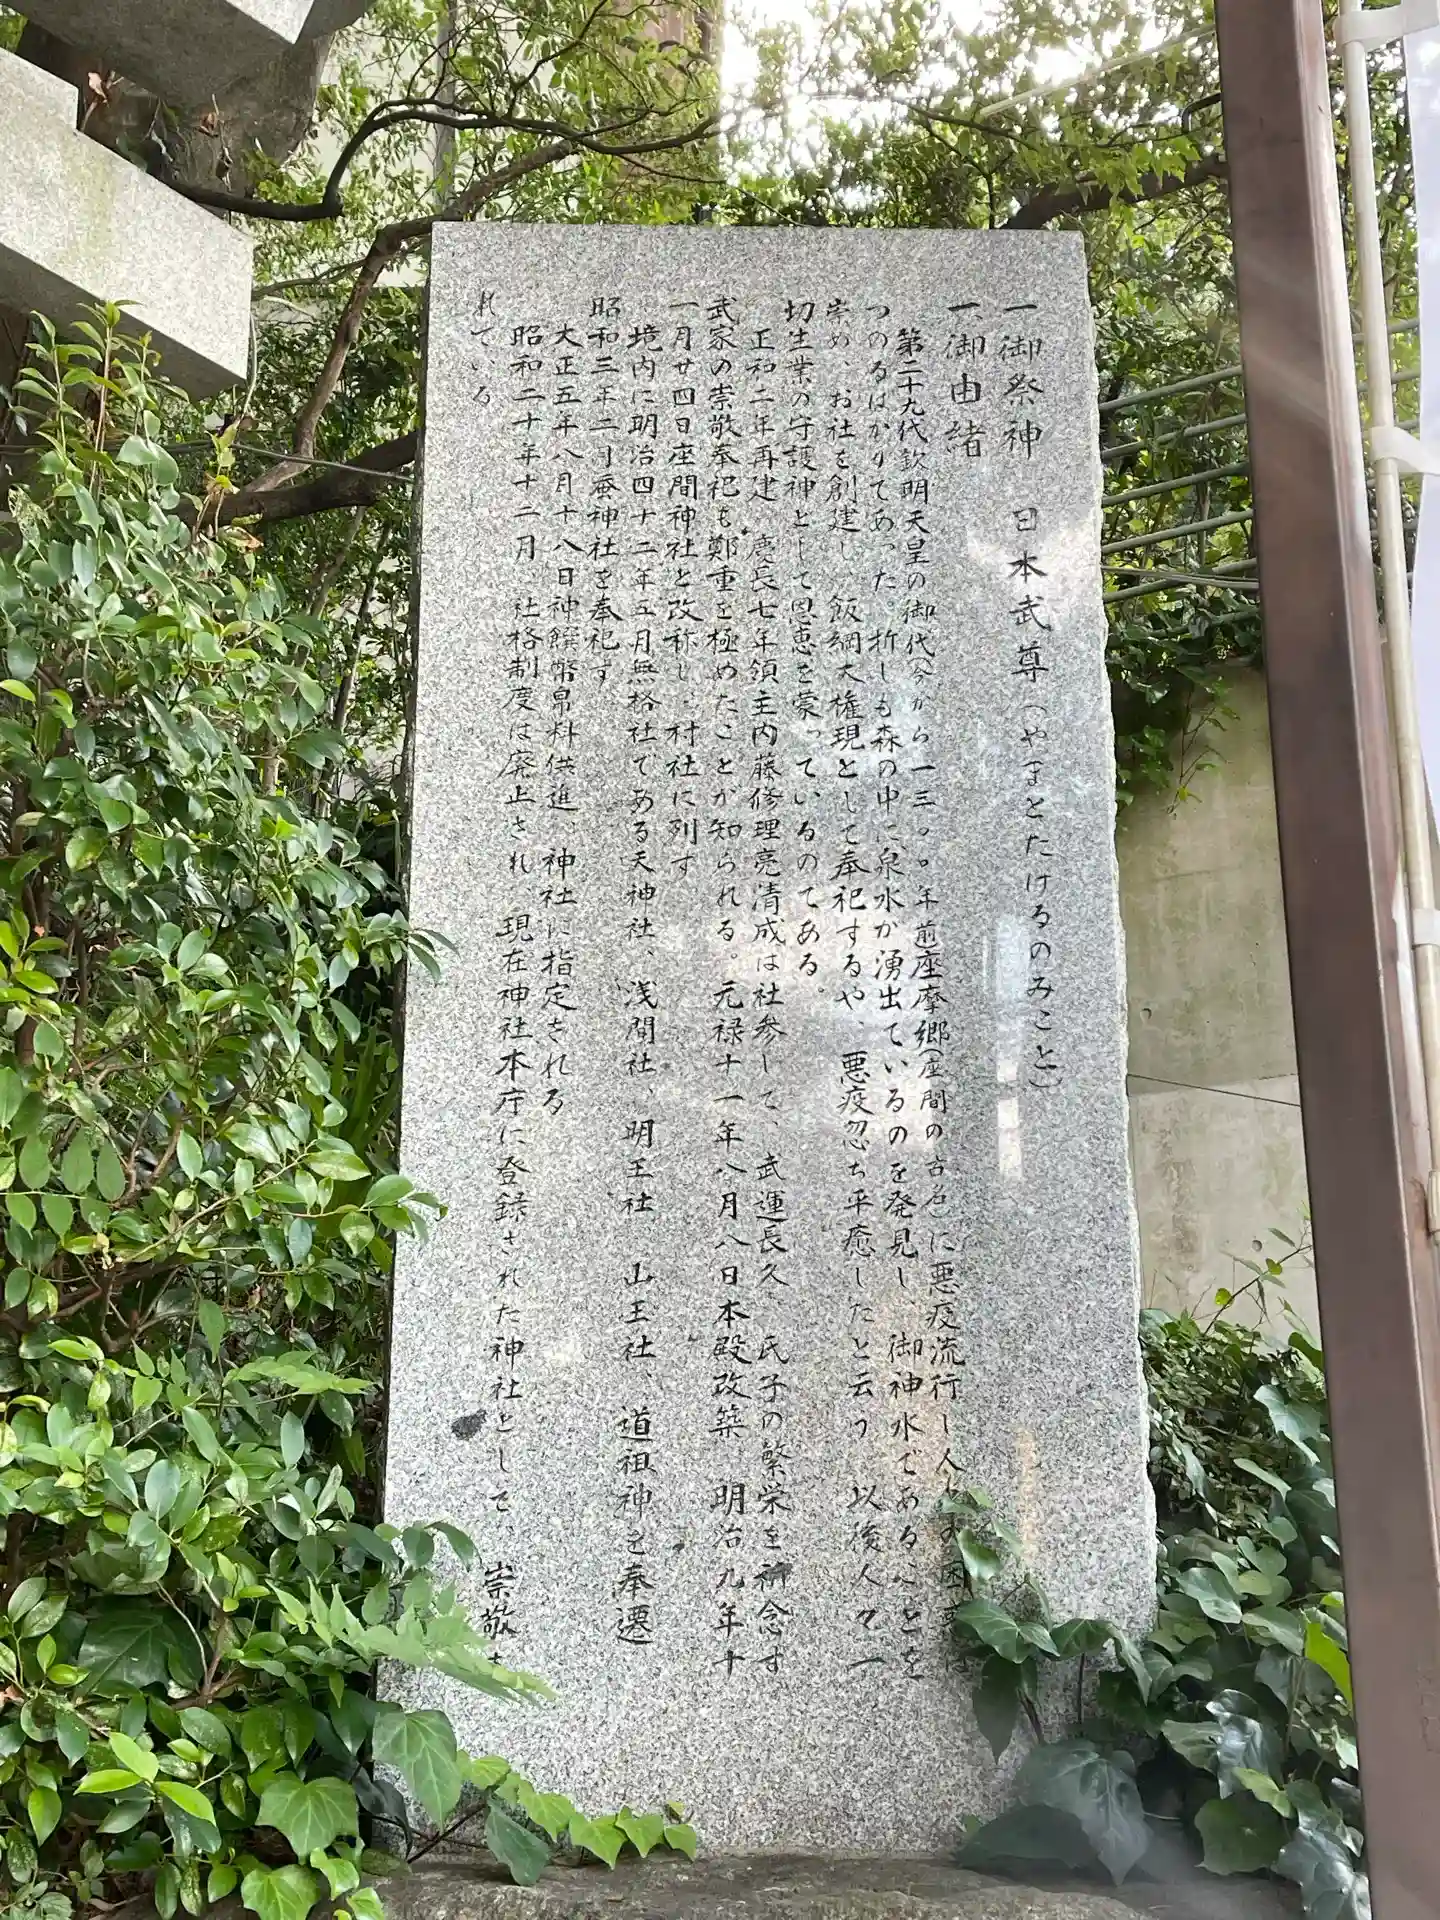 一御祭神 日本武尊(やまとたけるのみこと)
一御由緒
第二十九代欽明天皇の御代(今から一三〇〇年前座摩郷(座間の古名)に悪疫流行し人々の困惑は
つのるばかりであった。折しも森の中に泉水が湧出ているのを発見し、御神水であることを
崇め、お社を創建し、飯綱大権現として奉祀するや、悪疫忽ち平癒したと云う 以後人々一
切生業の守護神として恩恵を蒙っているのである。
正和二年再建、慶長七年領主内藤修理亮清成は社参して、武運長久、氏子の繁栄を祈念す
武家の崇敬奉祀も鄭重を極めたことが知られる。元禄十一年八月八日本殿改築 明治九年十
一月廿四日座間神社と改称し、村社に列す
境内に明治四十二年五月無格社である天神社、浅間社、明王社 山王社、道祖神を奉遷
昭和三年二月蚕神社を奉祀す
大正五年八月十八日神饌幣帛料供進、神社に指定される
昭和二十年十二月、社格制度は廃止され、現在神社本庁に登録された神社として、崇敬さ
れている